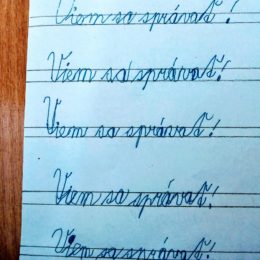 Viem sa správať!
Viem sa správať!
Viem sa správať!
Viem sa správať!
Viem sa správať!